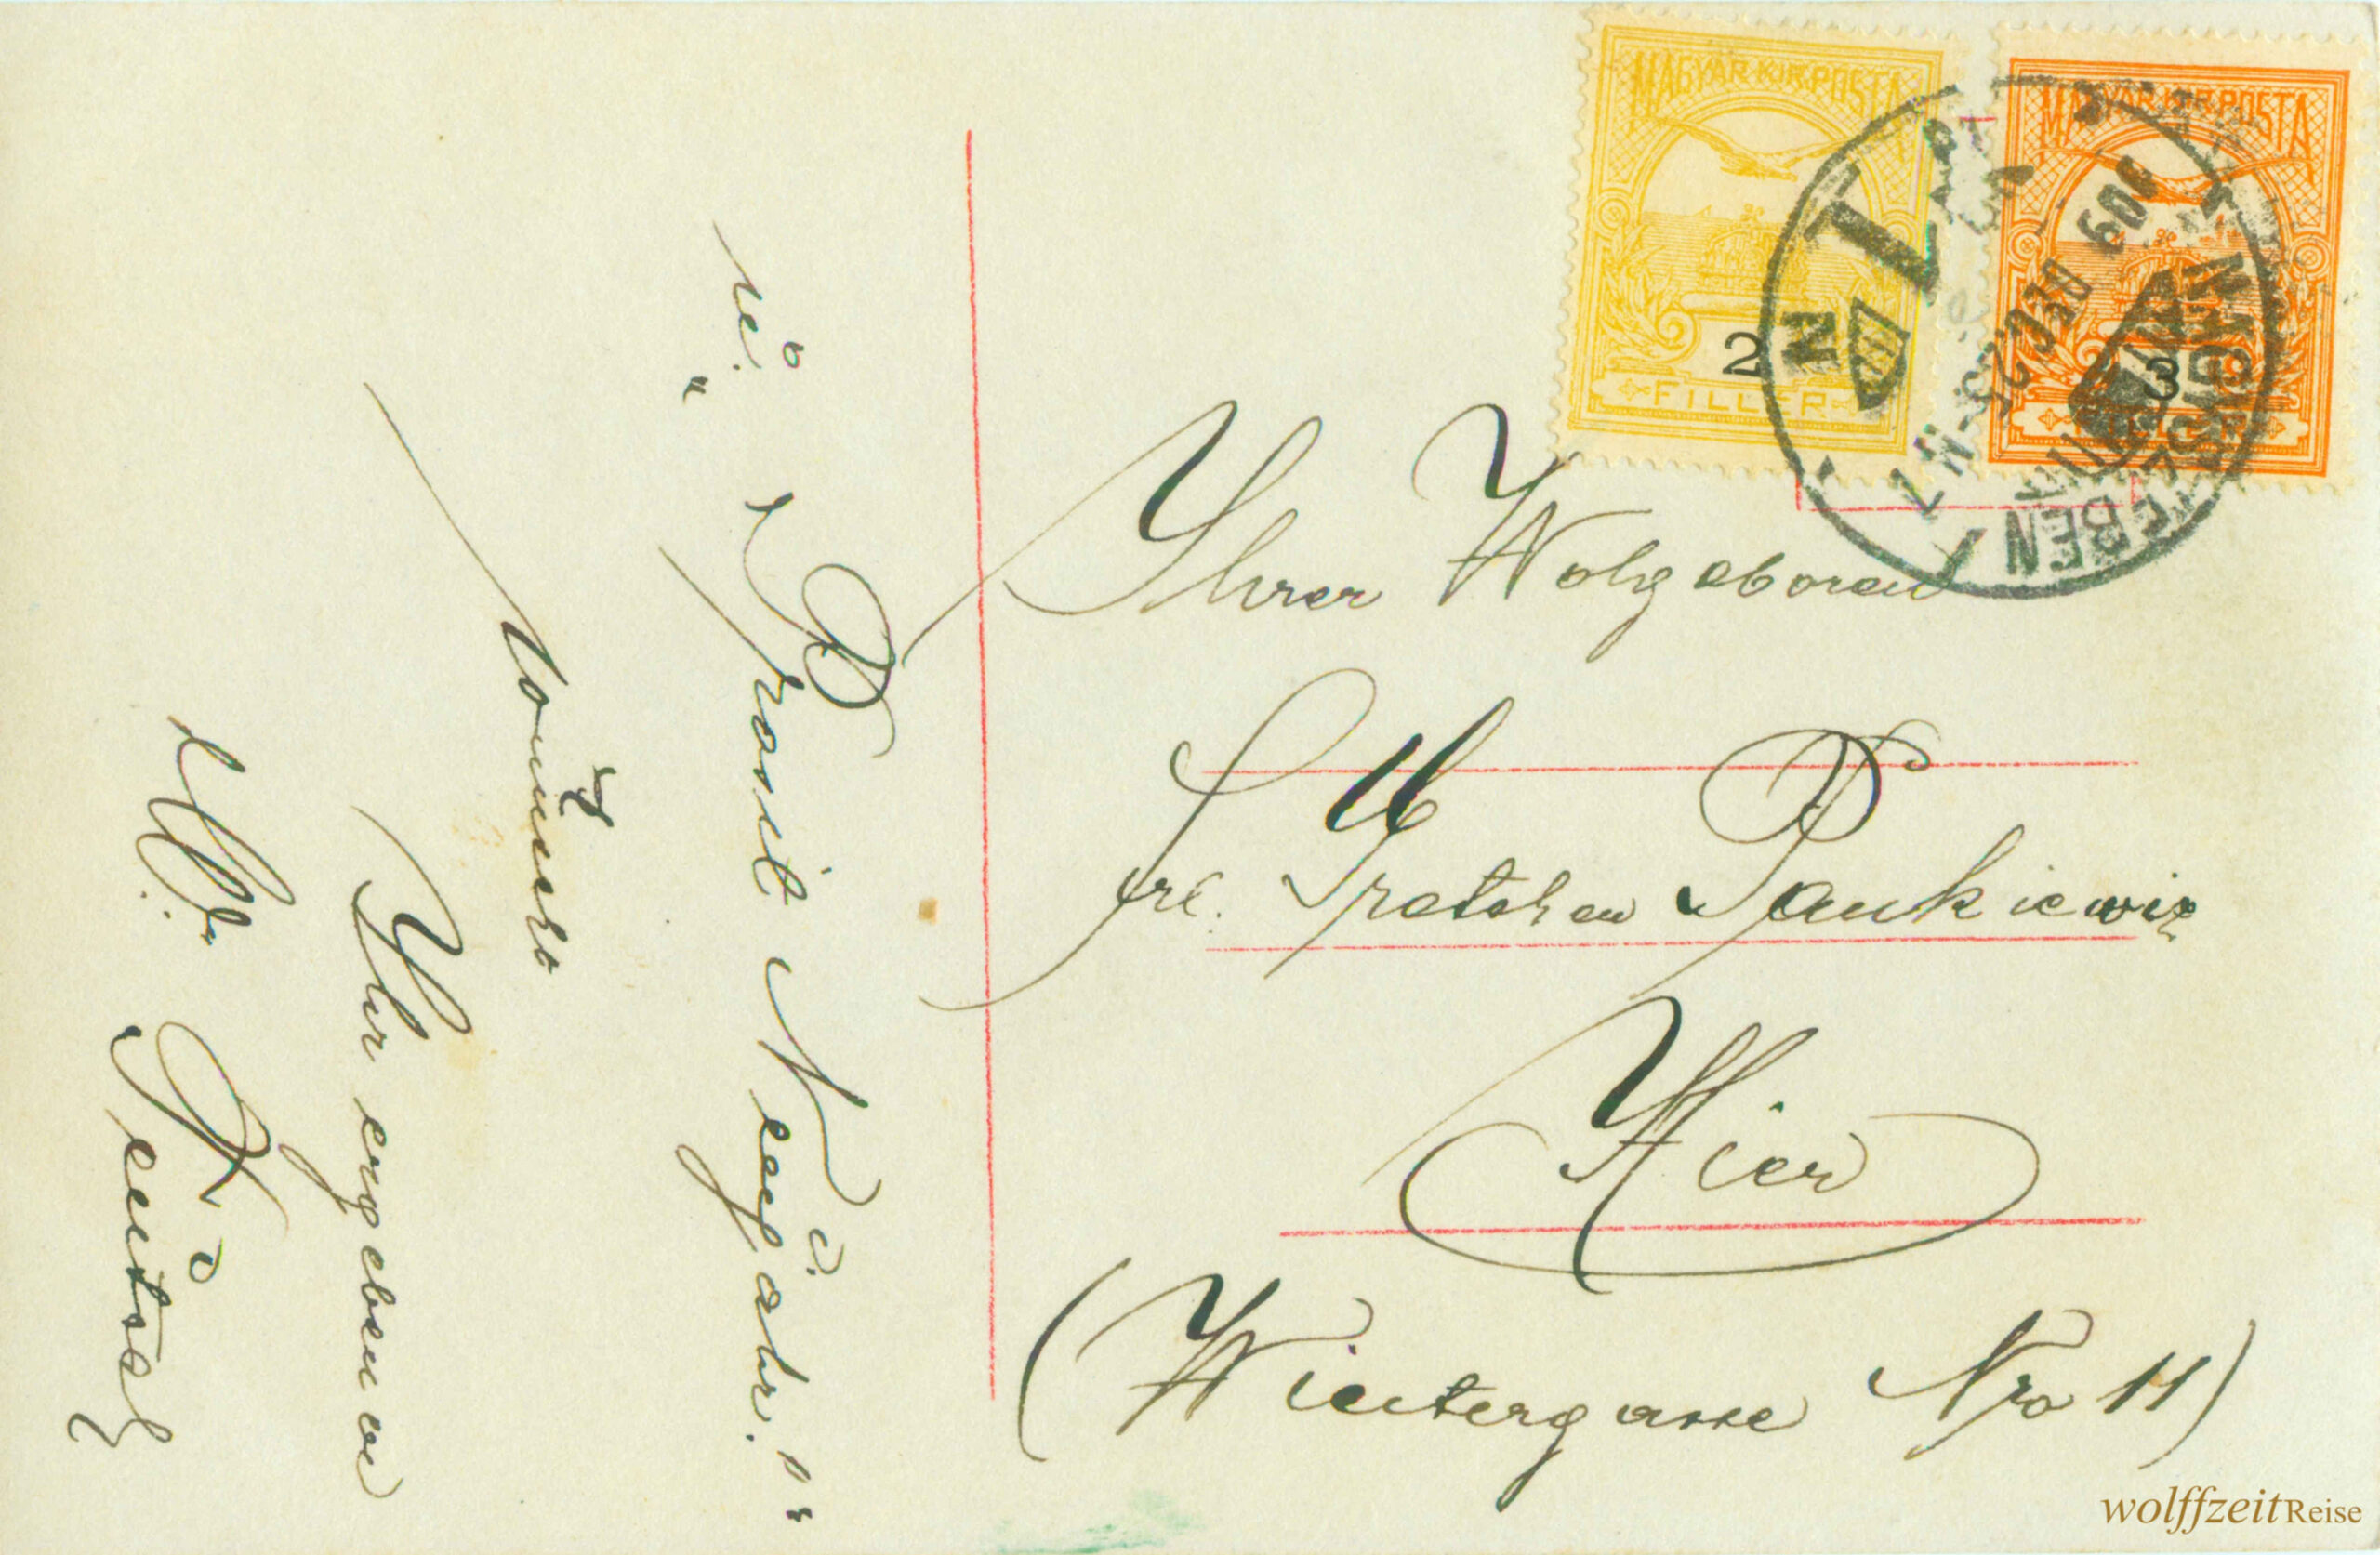 MAGYAR KIR. POSTA
2
FILLÉR
MAGYAR KIR. POSTA
3
NAGYSZEBEN
909 DEC
Ihrer Wolgeboren
Frl. Gretchen Pankiewiz
Hier
(Wintergasse Nro 11)
„Prosit Neujahr."
Ihr ergebener
Teutsch
wolffzeitReise